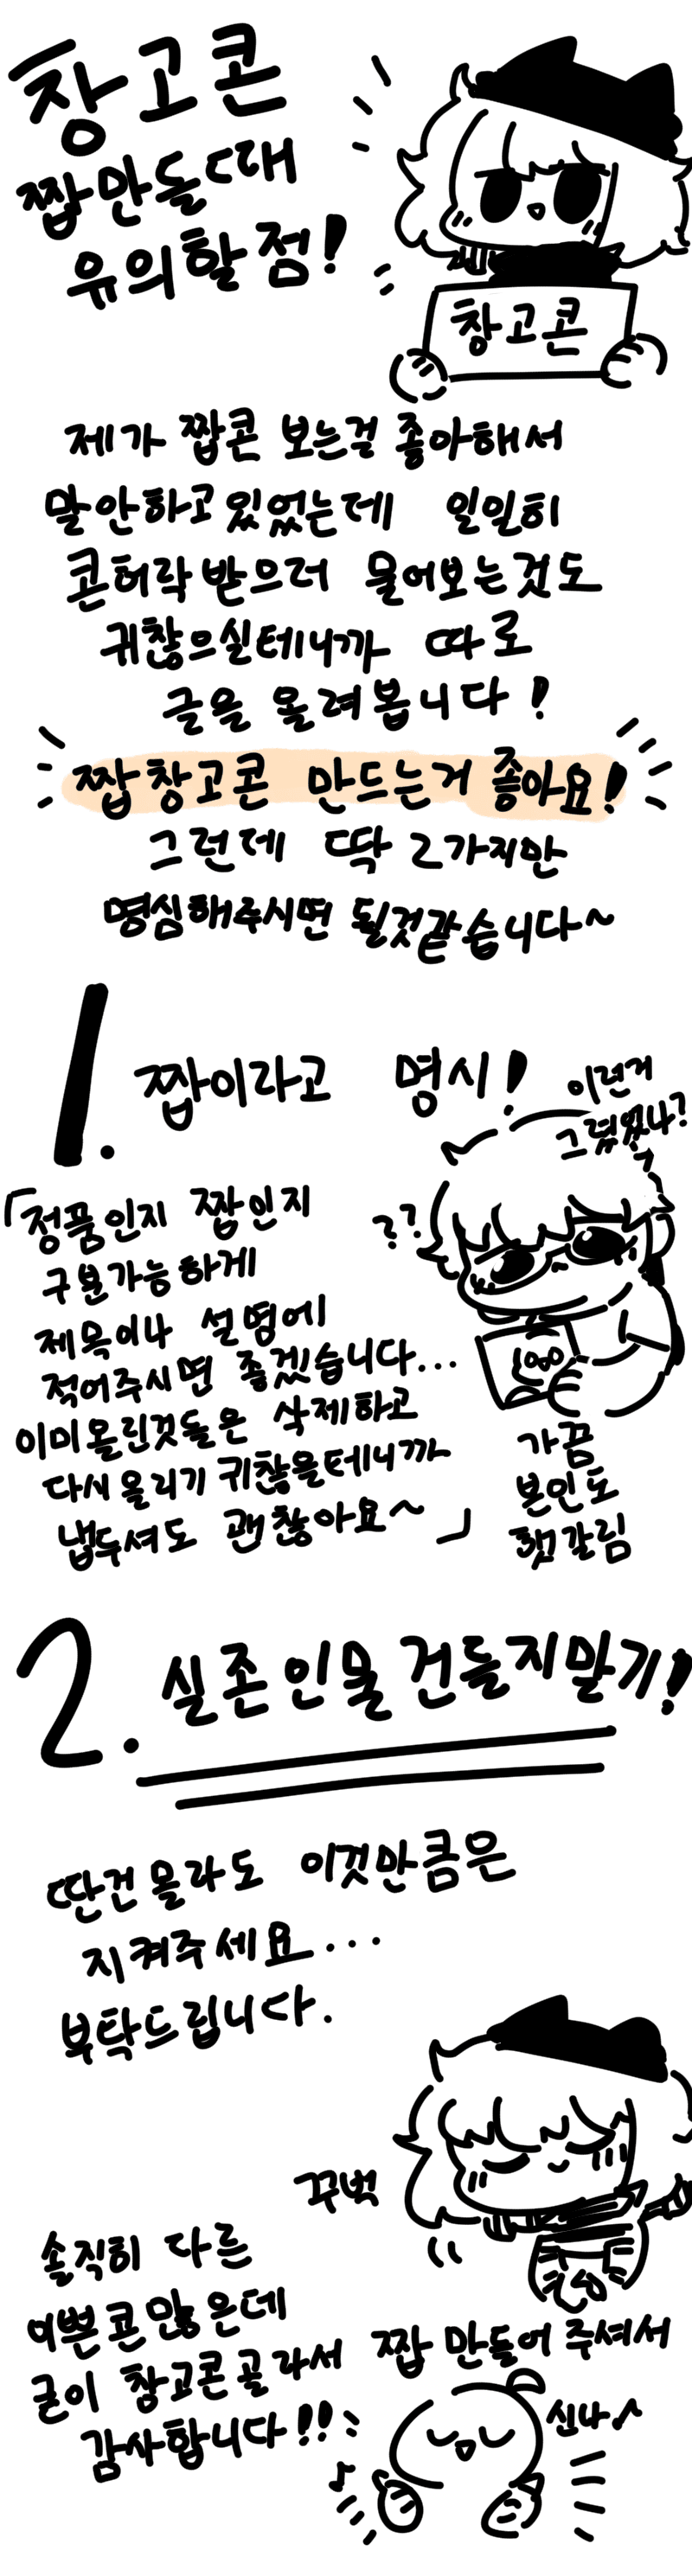 창고콘
짭만들때
유의할점!
창고콘
제가 짭콘 보는걸 좋아해서
말안하고있었는데 일일히
콘허락받으러 물어보는것도
귀찮으실테니까 따로
글을 올려봅니다!
짭창고콘 만드는거 좋아요!
그런데 딱 2가지만
명심해주시면 될것같습니다~
1. 짭이라고 명시!
이런거
그렸었나?
??
「정품인지 짭인지
구분가능하게
제목이나 설명에
적어주시면 좋겠습니다...
이미올린것들은 삭제하고
다시올리기 귀찮을테니까
냅두셔도 괜찮아요~」
가끔
본인도
햇갈림
2. 실존인물건들지말기!
딴건몰라도 이것만큼은
지켜주세요...
부탁드립니다.
꾸벅
솔직히 다른
이쁜콘많은데
굳이 창고콘골라서 짭만들어주셔서
감사합니다!!
신나♪
♪